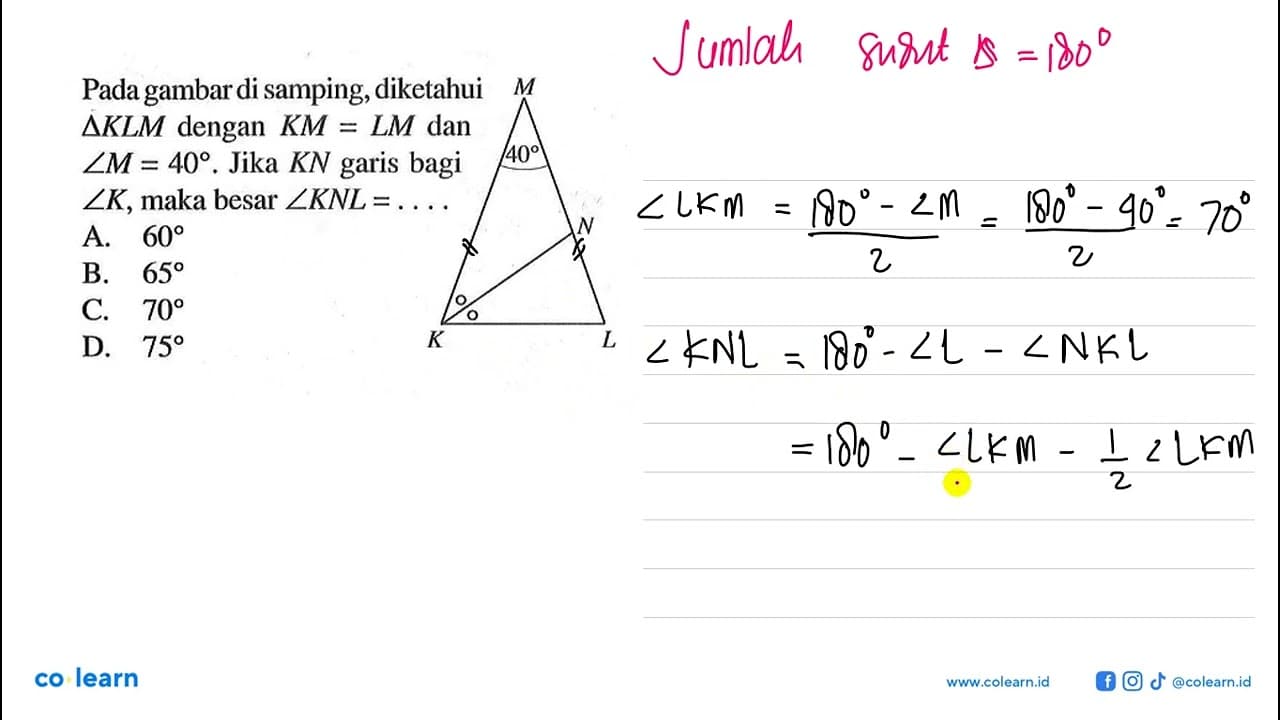 Jumlah sudut Δ = 180°
Pada gambar di samping, diketahui
ΔKLM dengan KM = LM dan
∠M = 40°. Jika KN garis bagi
∠K, maka besar ∠KNL = . . . .
A. 60°
B. 65°
C. 70°
D. 75°
M
40°
N
K
L
∠LKM = 180° - ∠M / 2 = 180° - 40° / 2 = 70°
∠KNL = 180° - ∠L - ∠NKL
= 180° - ∠LKM - 1/2 ∠LKM
co learn
www.colearn.id
@colearn.id